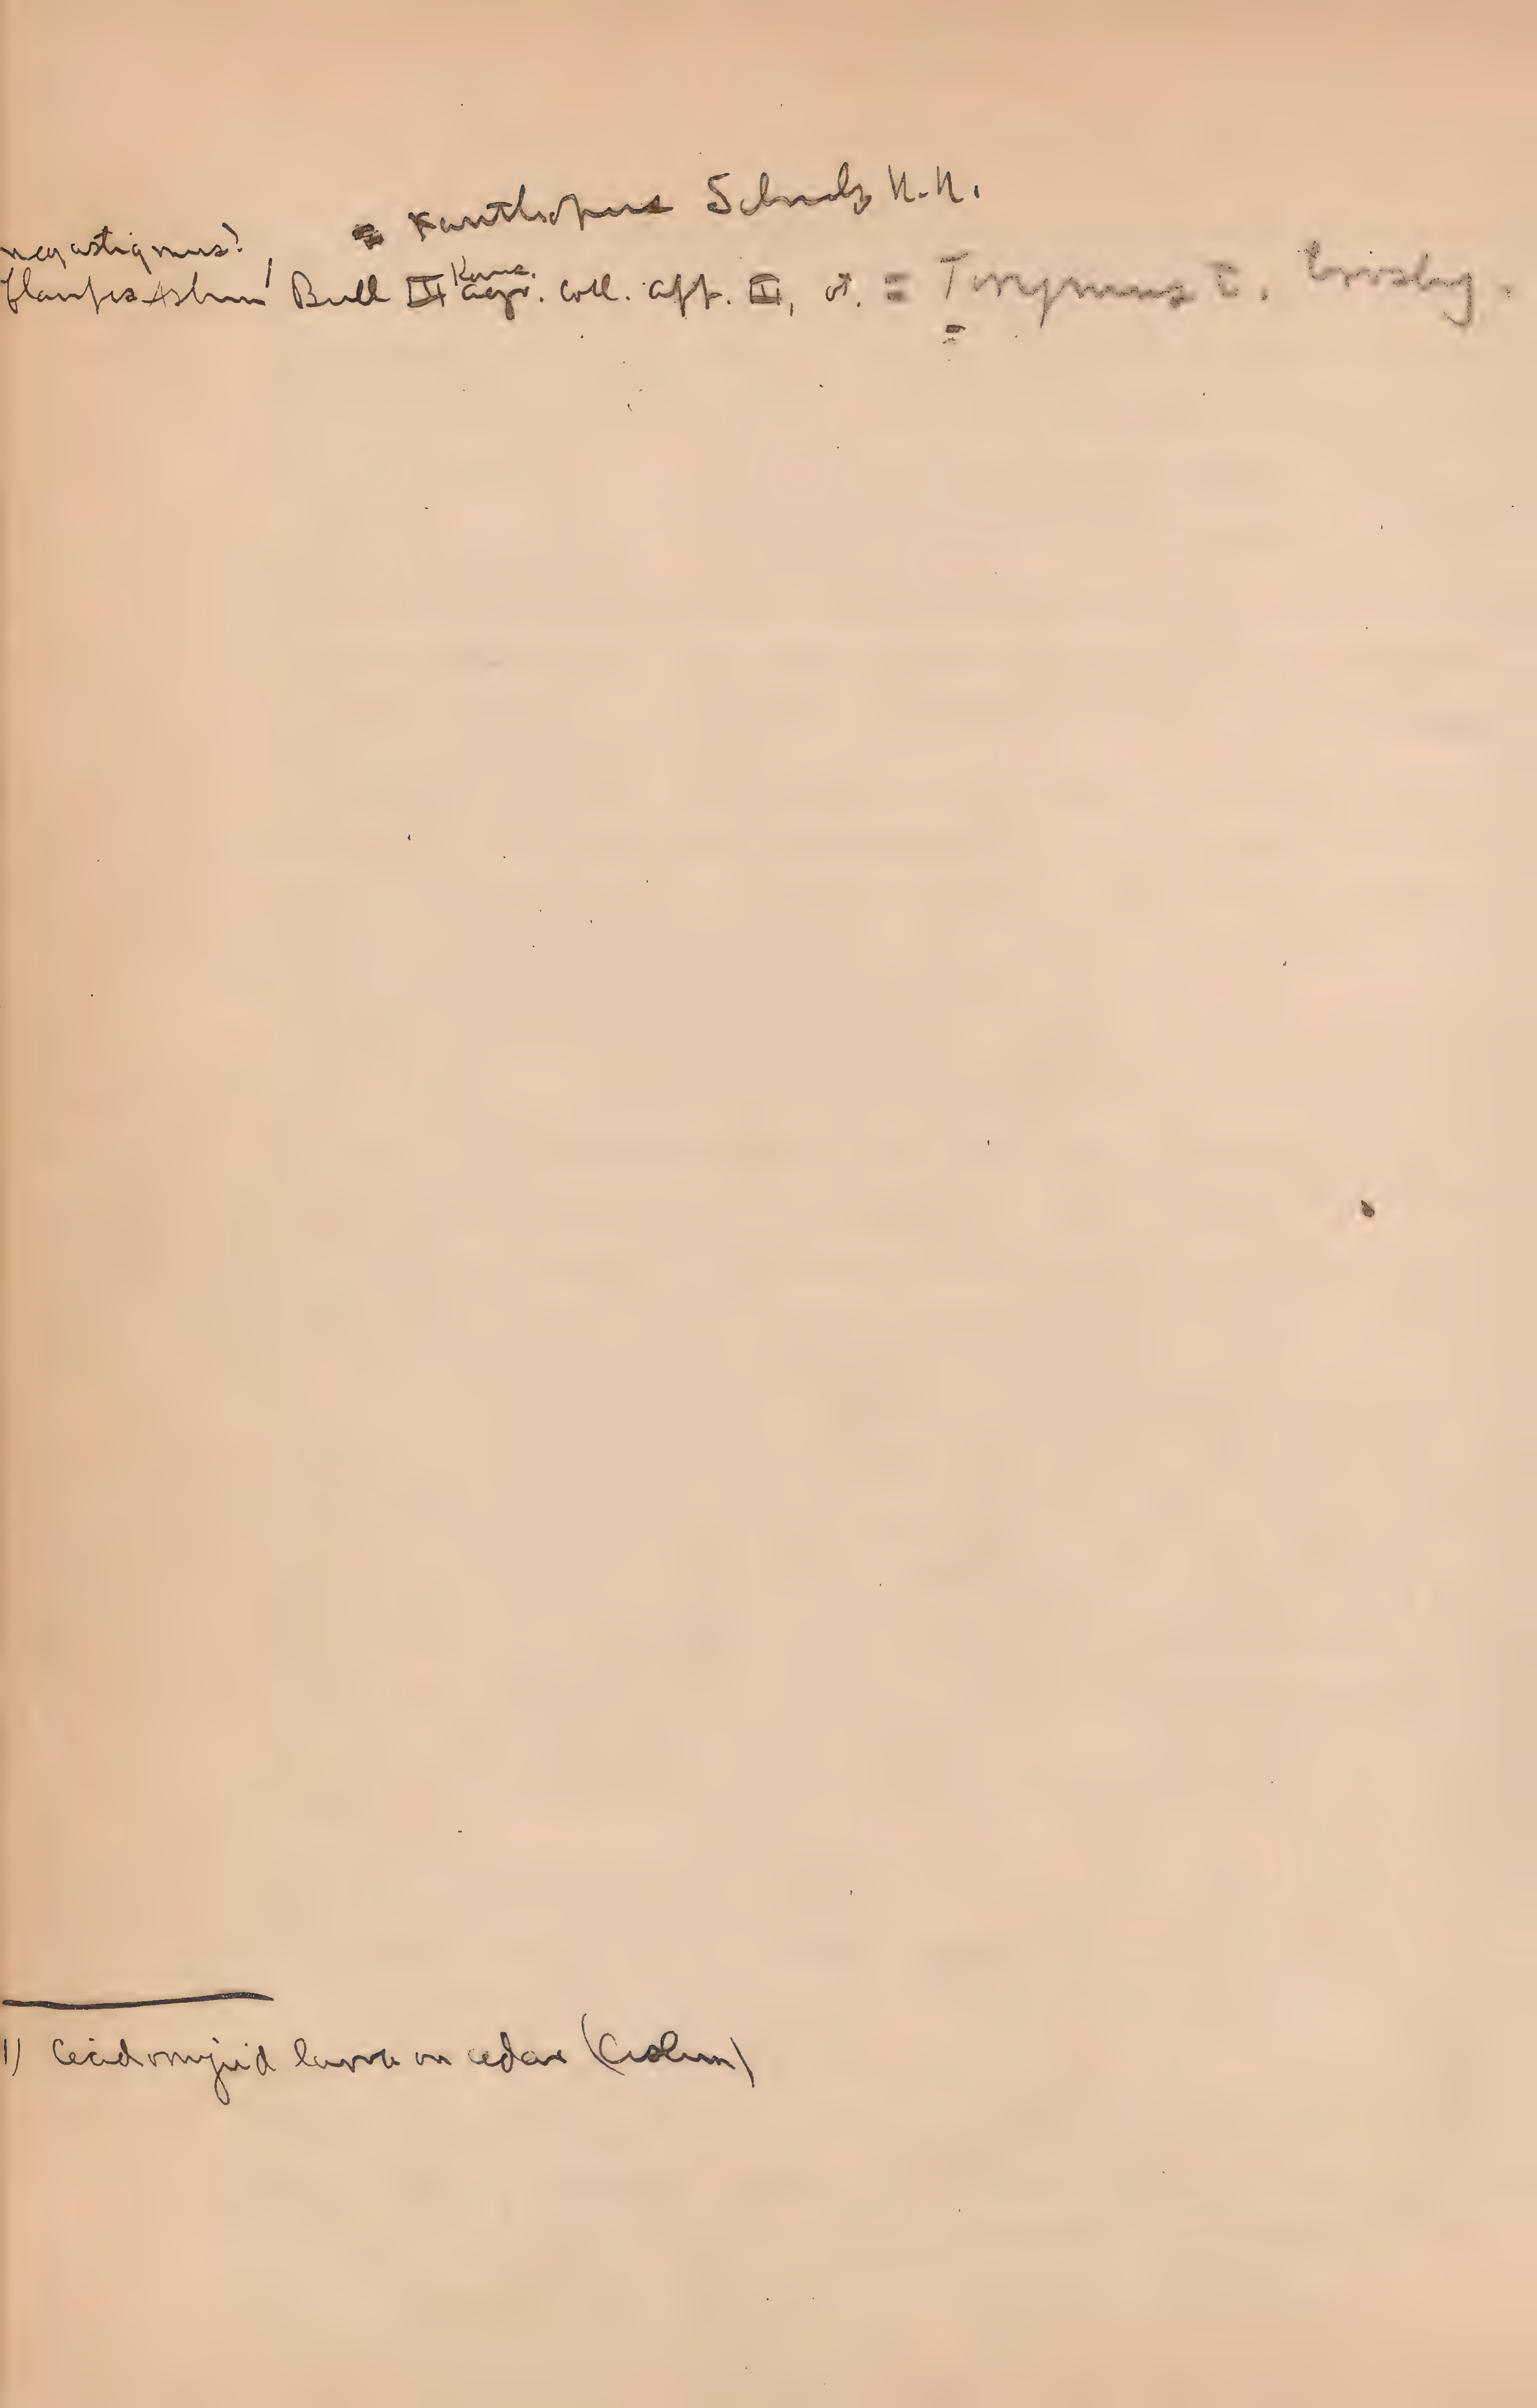 = xanthopus Schulz N.N.
megastigmus?
flavipes Ashm' Bull III Kans. agr. coll. app. II, vi. = Torymus T. Crosby.
1) Cecidomyiid larva on cedar (Colum)